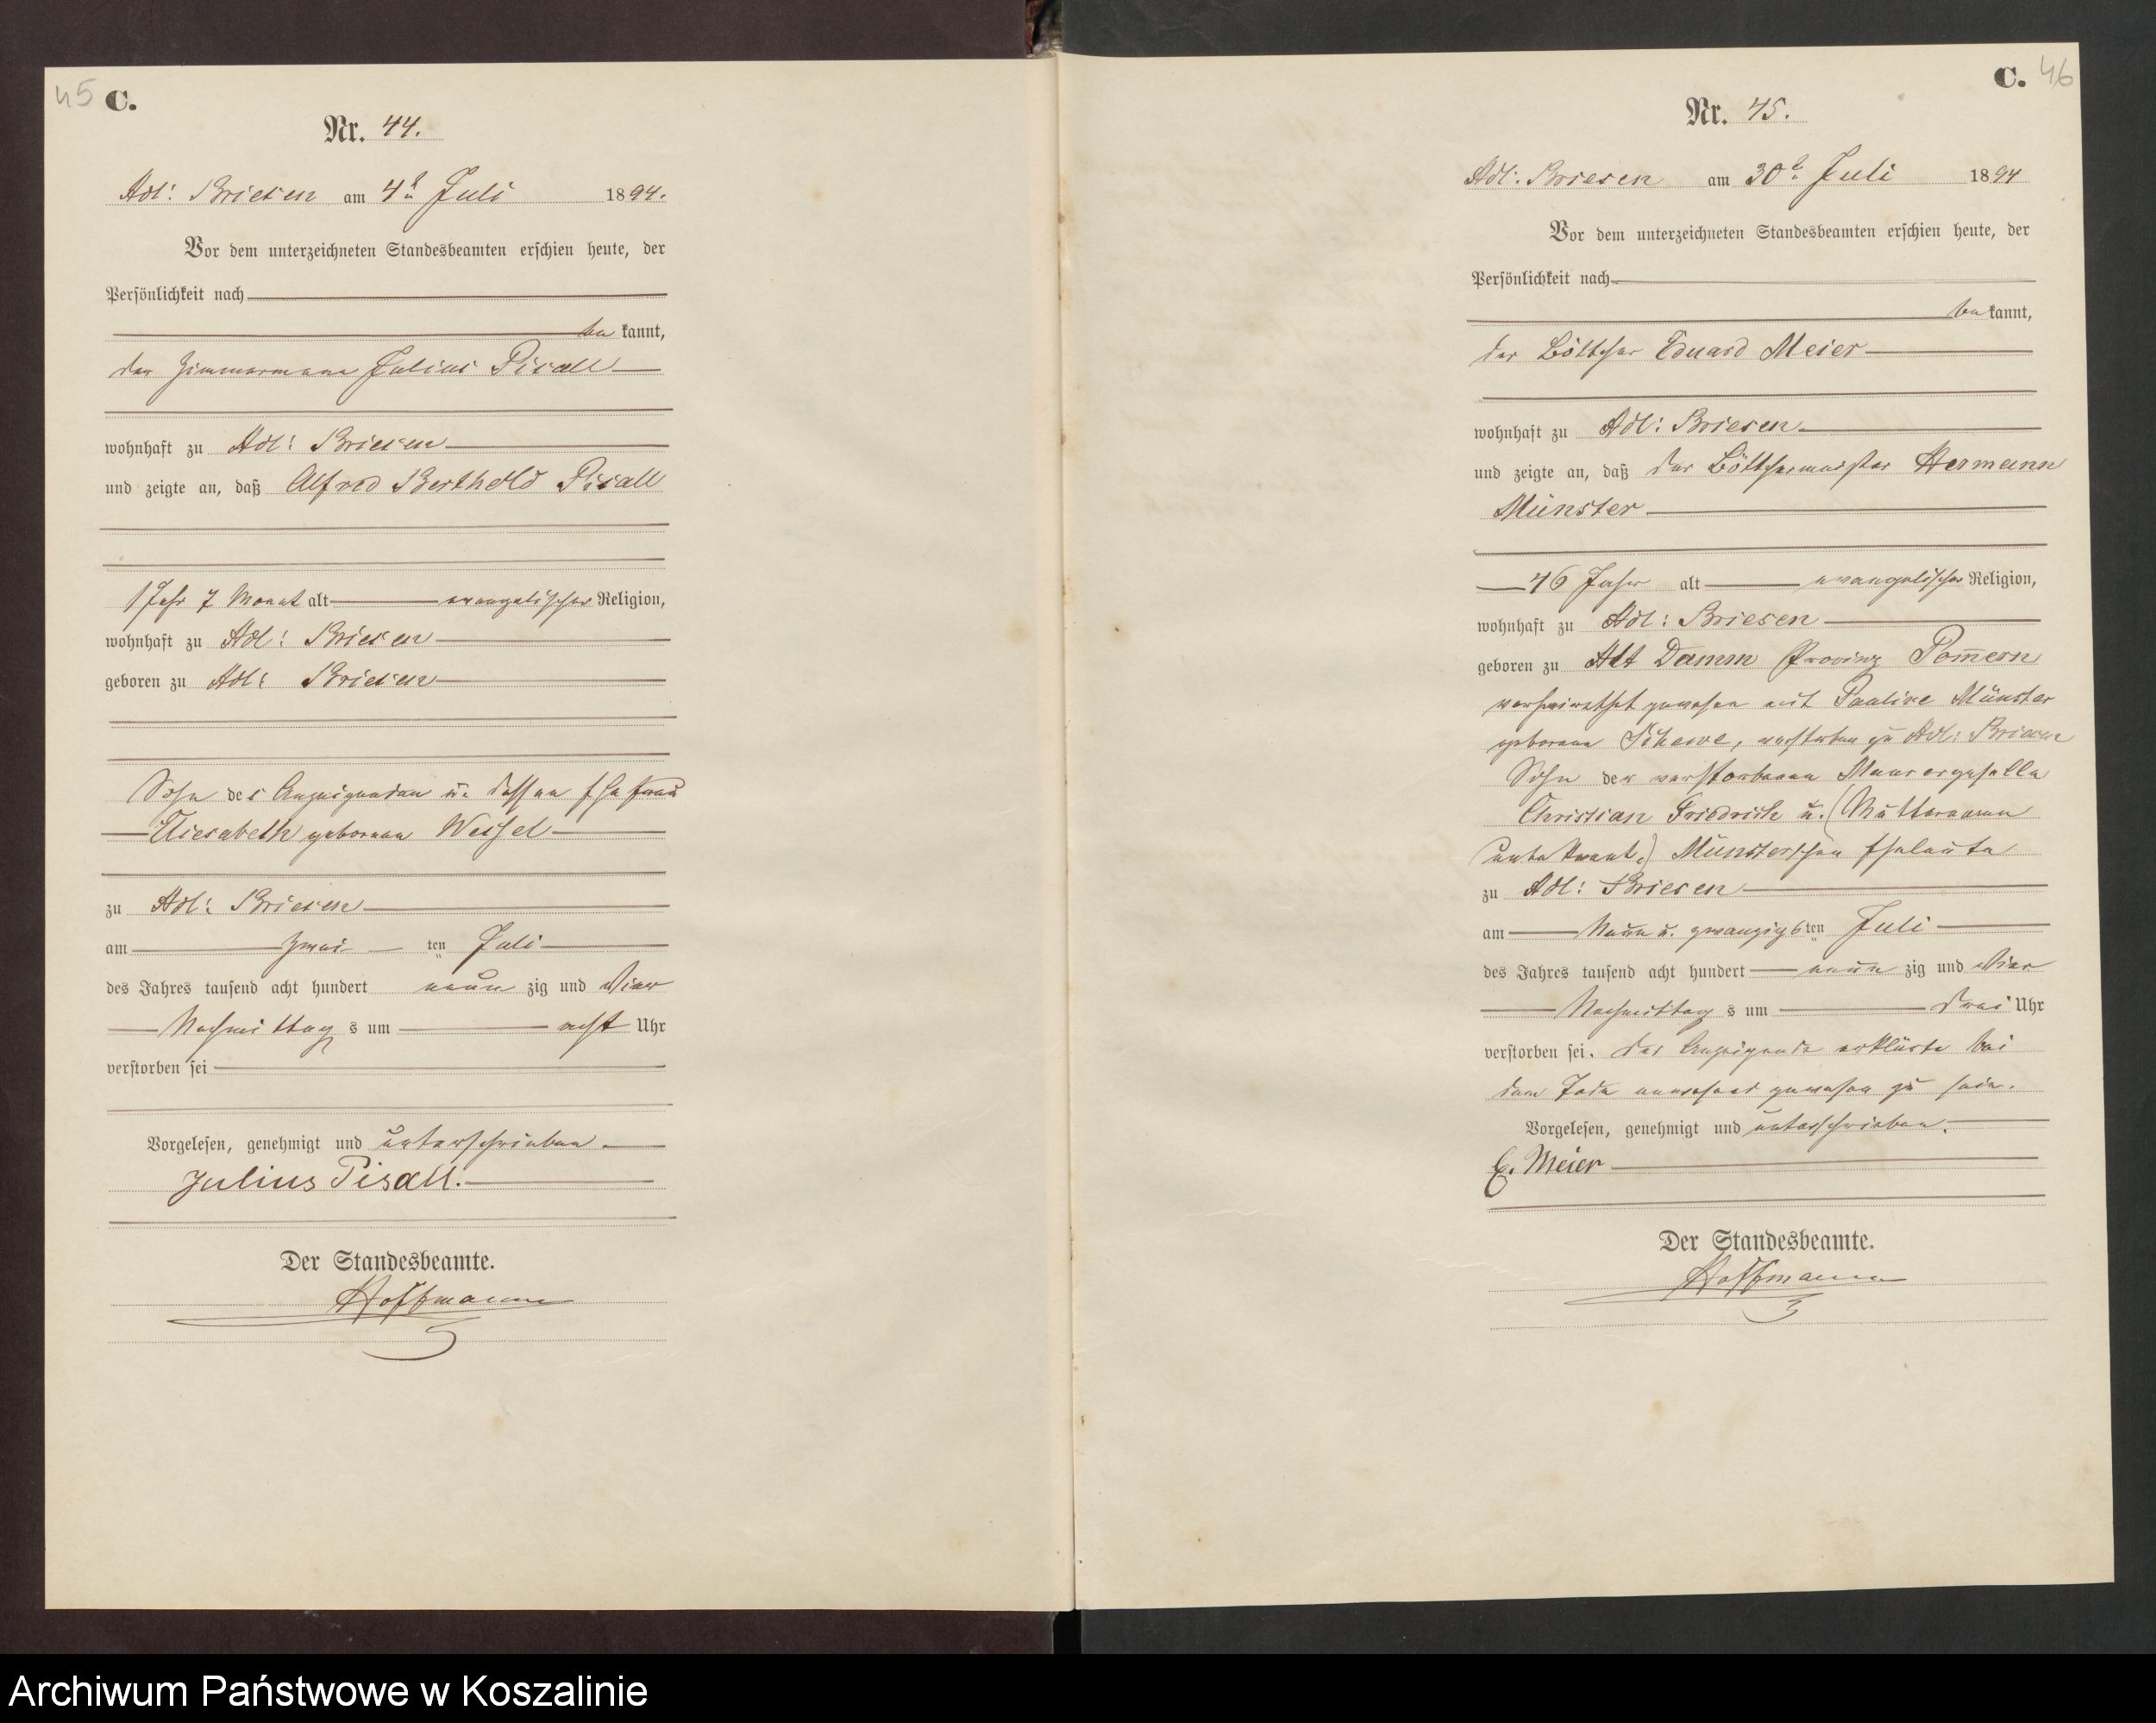 45 C.
Nr. 44.
Adl: Briesen am 4ten Juli 1894.
Vor dem unterzeichneten Standesbeamten erschien heute, der
Persönlichkeit nach
be kannt,
der Zimmermann Julius Pisall
wohnhaft zu Adl: Briesen
und zeigte an, daß Alfred Berthold Pisall
1 Jahr 7 Monat alt evangelischer Religion,
wohnhaft zu Adl: Briesen
geboren zu Adl: Briesen
Sohn des Anzeigenden u. dessen Ehefrau
Eliesabeth geborene Weißel
zu Adl: Briesen
am zwei ten Juli
des Jahres tausend acht hundert neun zig und vier
Nachmittag s um acht Uhr
verstorben sei
Vorgelesen, genehmigt und unterschrieben.
Julius Pisall.
Der Standesbeamte.
Hoffmann
C. 46
Nr. 45.
Adl: Briesen am 30ten Juli 1894
Vor dem unterzeichneten Standesbeamten erschien heute, der
Persönlichkeit nach
be kannt,
der Böttcher Eduard Meier
wohnhaft zu Adl: Briesen
und zeigte an, daß der Böttchermeister Hermann
Münster
46 Jahr alt evangelischer Religion,
wohnhaft zu Adl: Briesen
geboren zu Alt Damm Provinz Pom̄ern
verheirathet gewesen mit Pauline Münster
geborene Schewe, verstorben zu Adl: Briesen
Sohn der verstorbenen Maurergeselle
Christian Friedrich u. (Muttername
unbekannt.) Münsterschen Eheleute
zu Adl: Briesen
am Neun u. zwanzigs ten Juli
des Jahres tausend acht hundert neun zig und vier
Nachmittag s um drei Uhr
verstorben sei. Der Anzeigende erklärte bei
dem Tode anwesend gewesen zu sein.
Vorgelesen, genehmigt und unterschrieben.
E. Meier
Der Standesbeamte.
Hoffmann
Archiwum Państwowe w Koszalinie